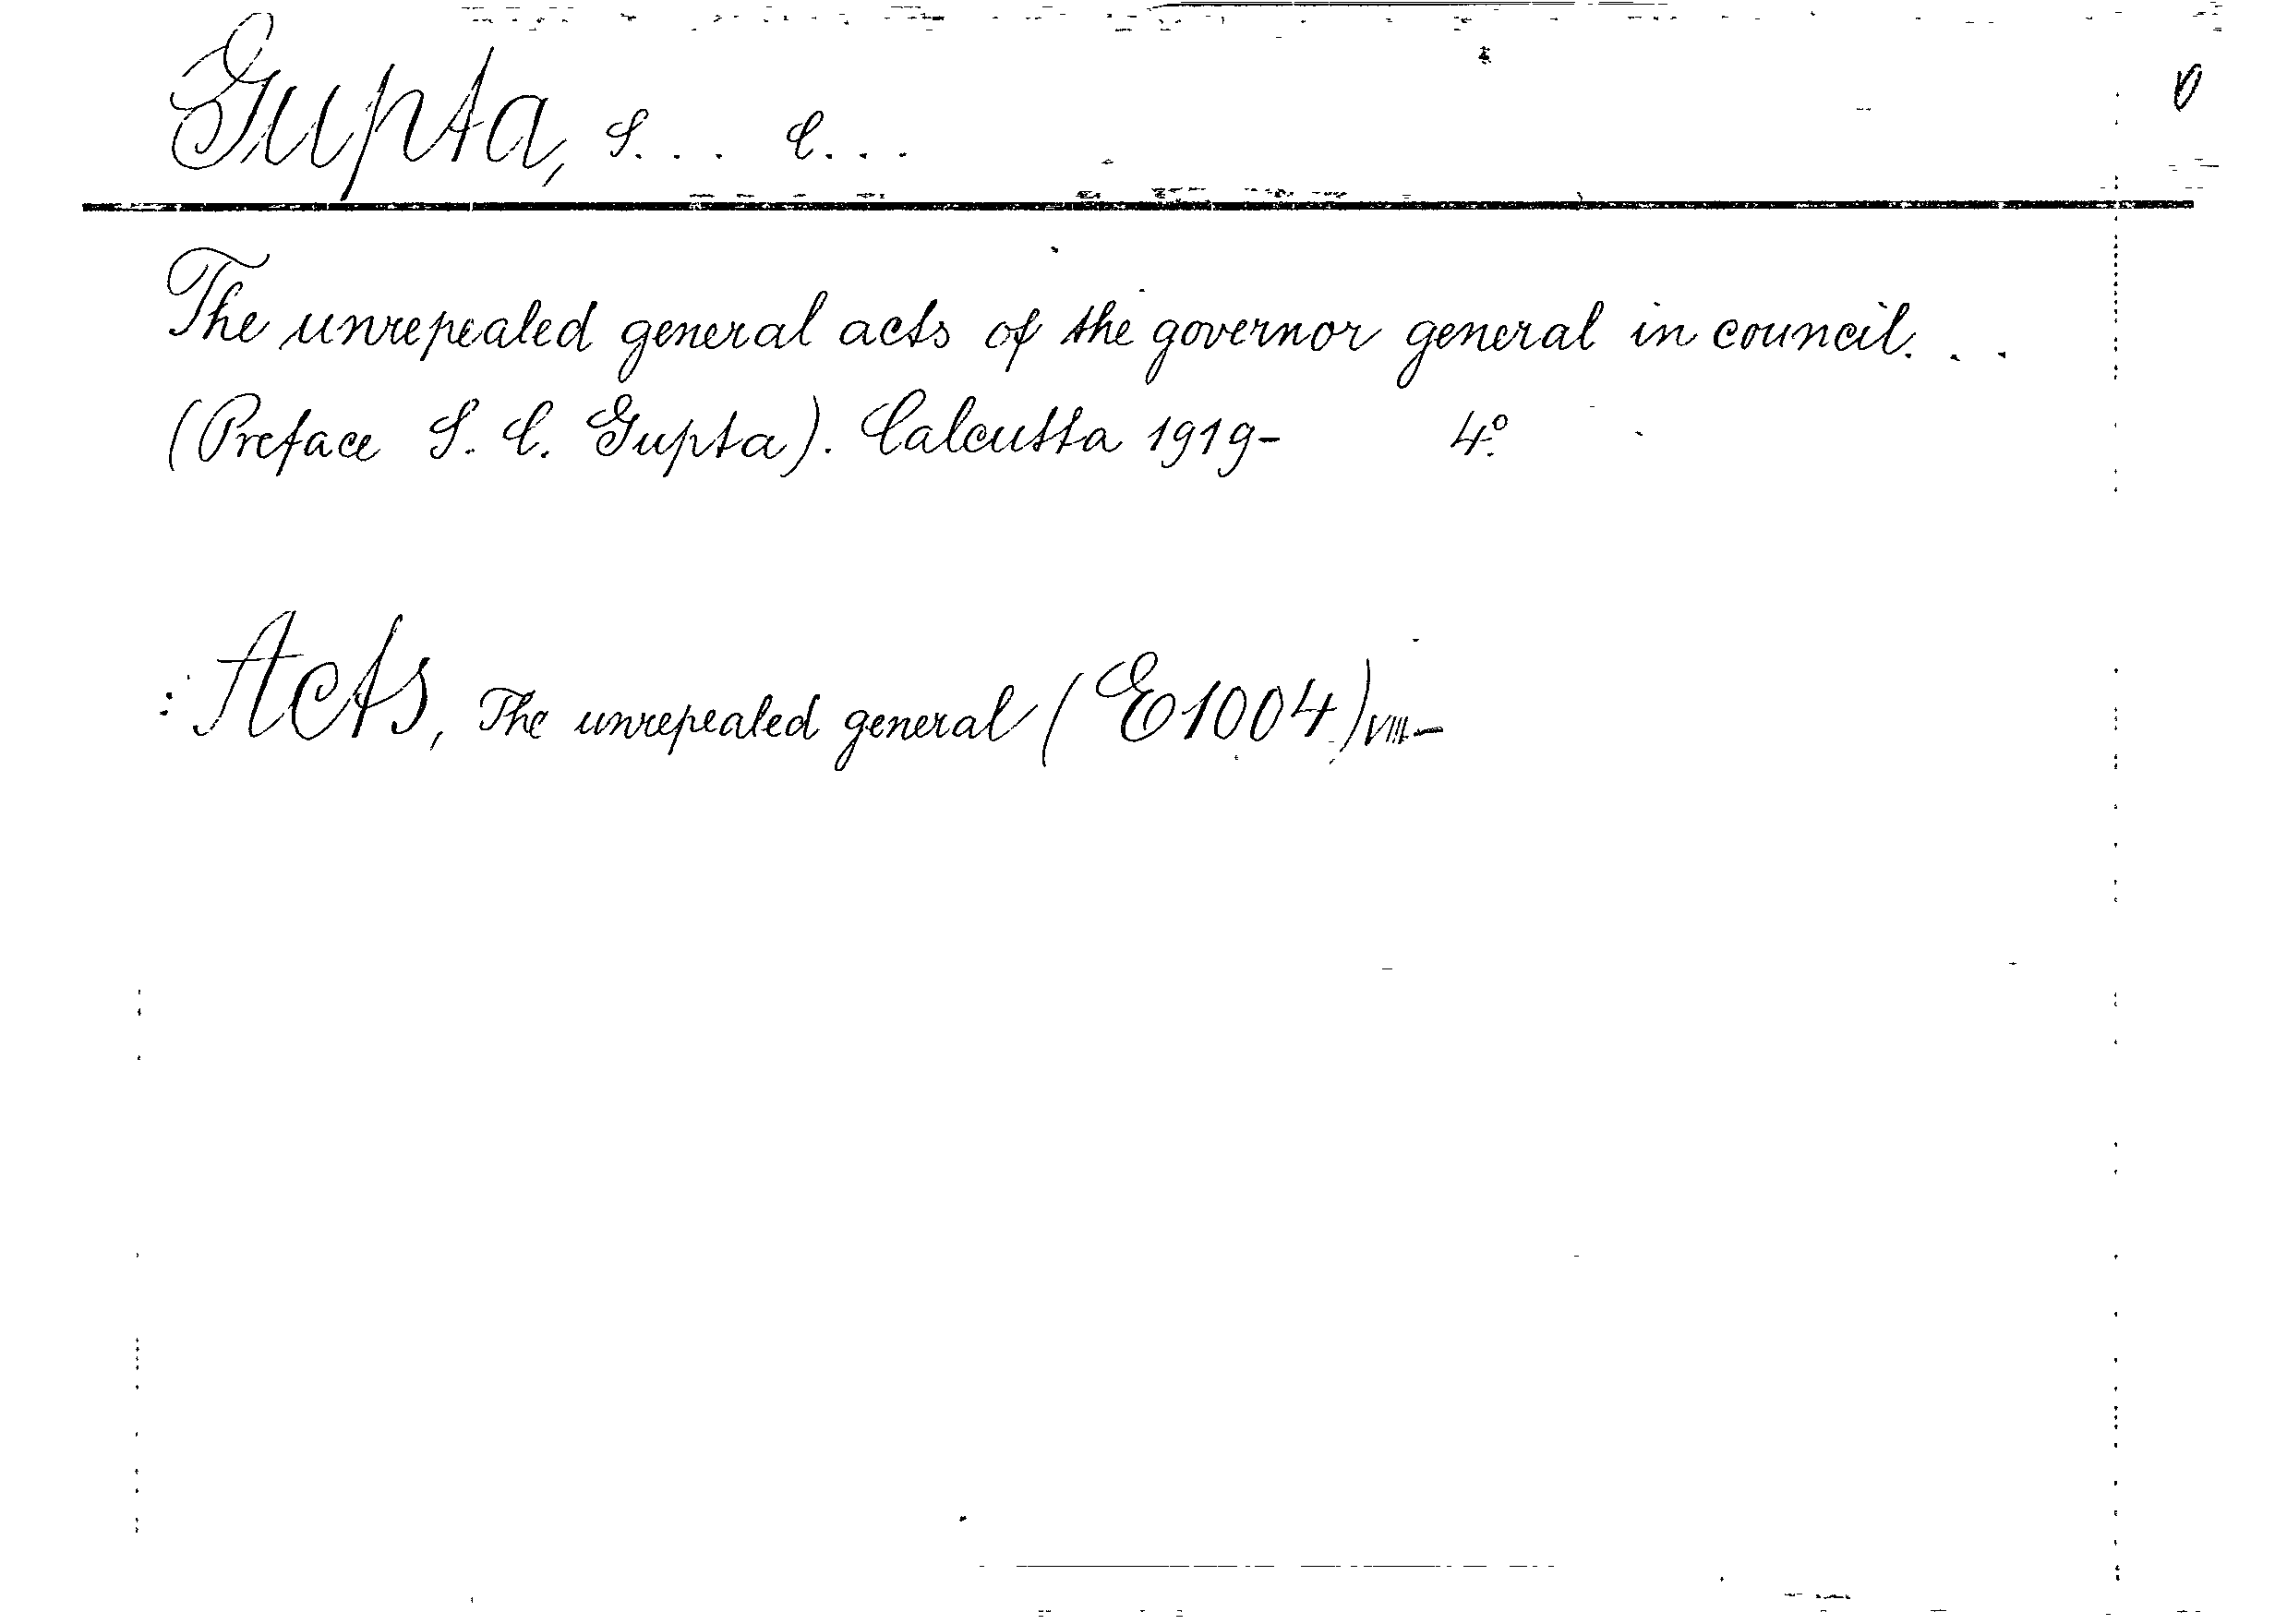 Gupta, S... C...
The unrepealed general acts of the governor general in council...
(Preface S. C. Gupta). Calcutta 1919- 4º.
: Acts, The unrepealed general (E1004) VIII-